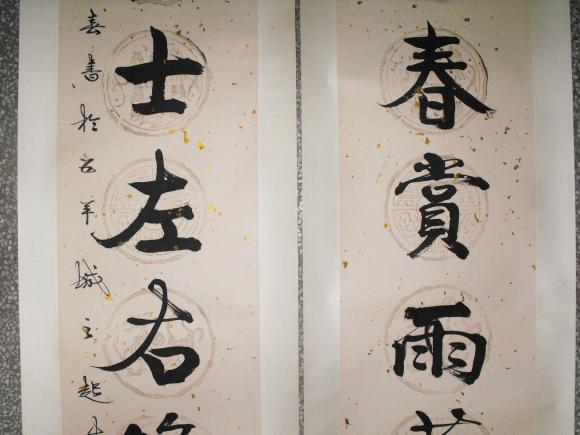 春賞雨
士左右
春書於五羊城之